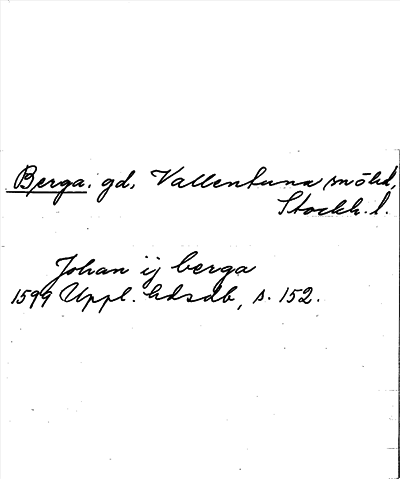 Berga. gd, Vallentuna snöhd,
Stockh. l.
Johan ij berga
1599 Uppl. hdsdb, s. 152.